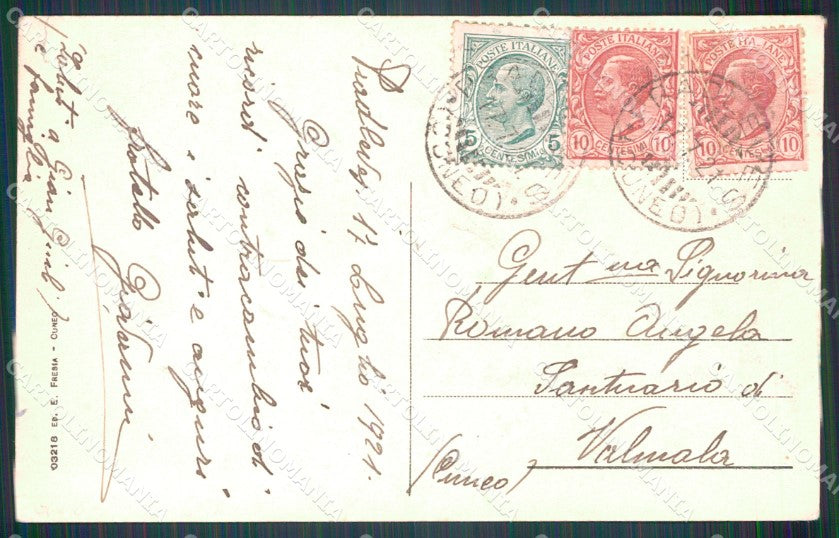 Pradleves 17 Luglio 1921.
Grazie dei tuoi
ricordi contracambio di
cuore i saluti e auguri
fratello Giovanni
Saluti a
e famiglia
03218 ED. E. FRESIA - CUNEO
POSTE ITALIANE
5 CENTESIMI 5
POSTE ITALIANE
10 CENTESIMI 10
POSTE ITALIANE
10 CENTESIMI 10
(CUNEO)
(CUNEO)
Gent ma Signorina
Romano Angela
Santuario di
Valmala
(Cuneo)
CARTOLINOMANIA